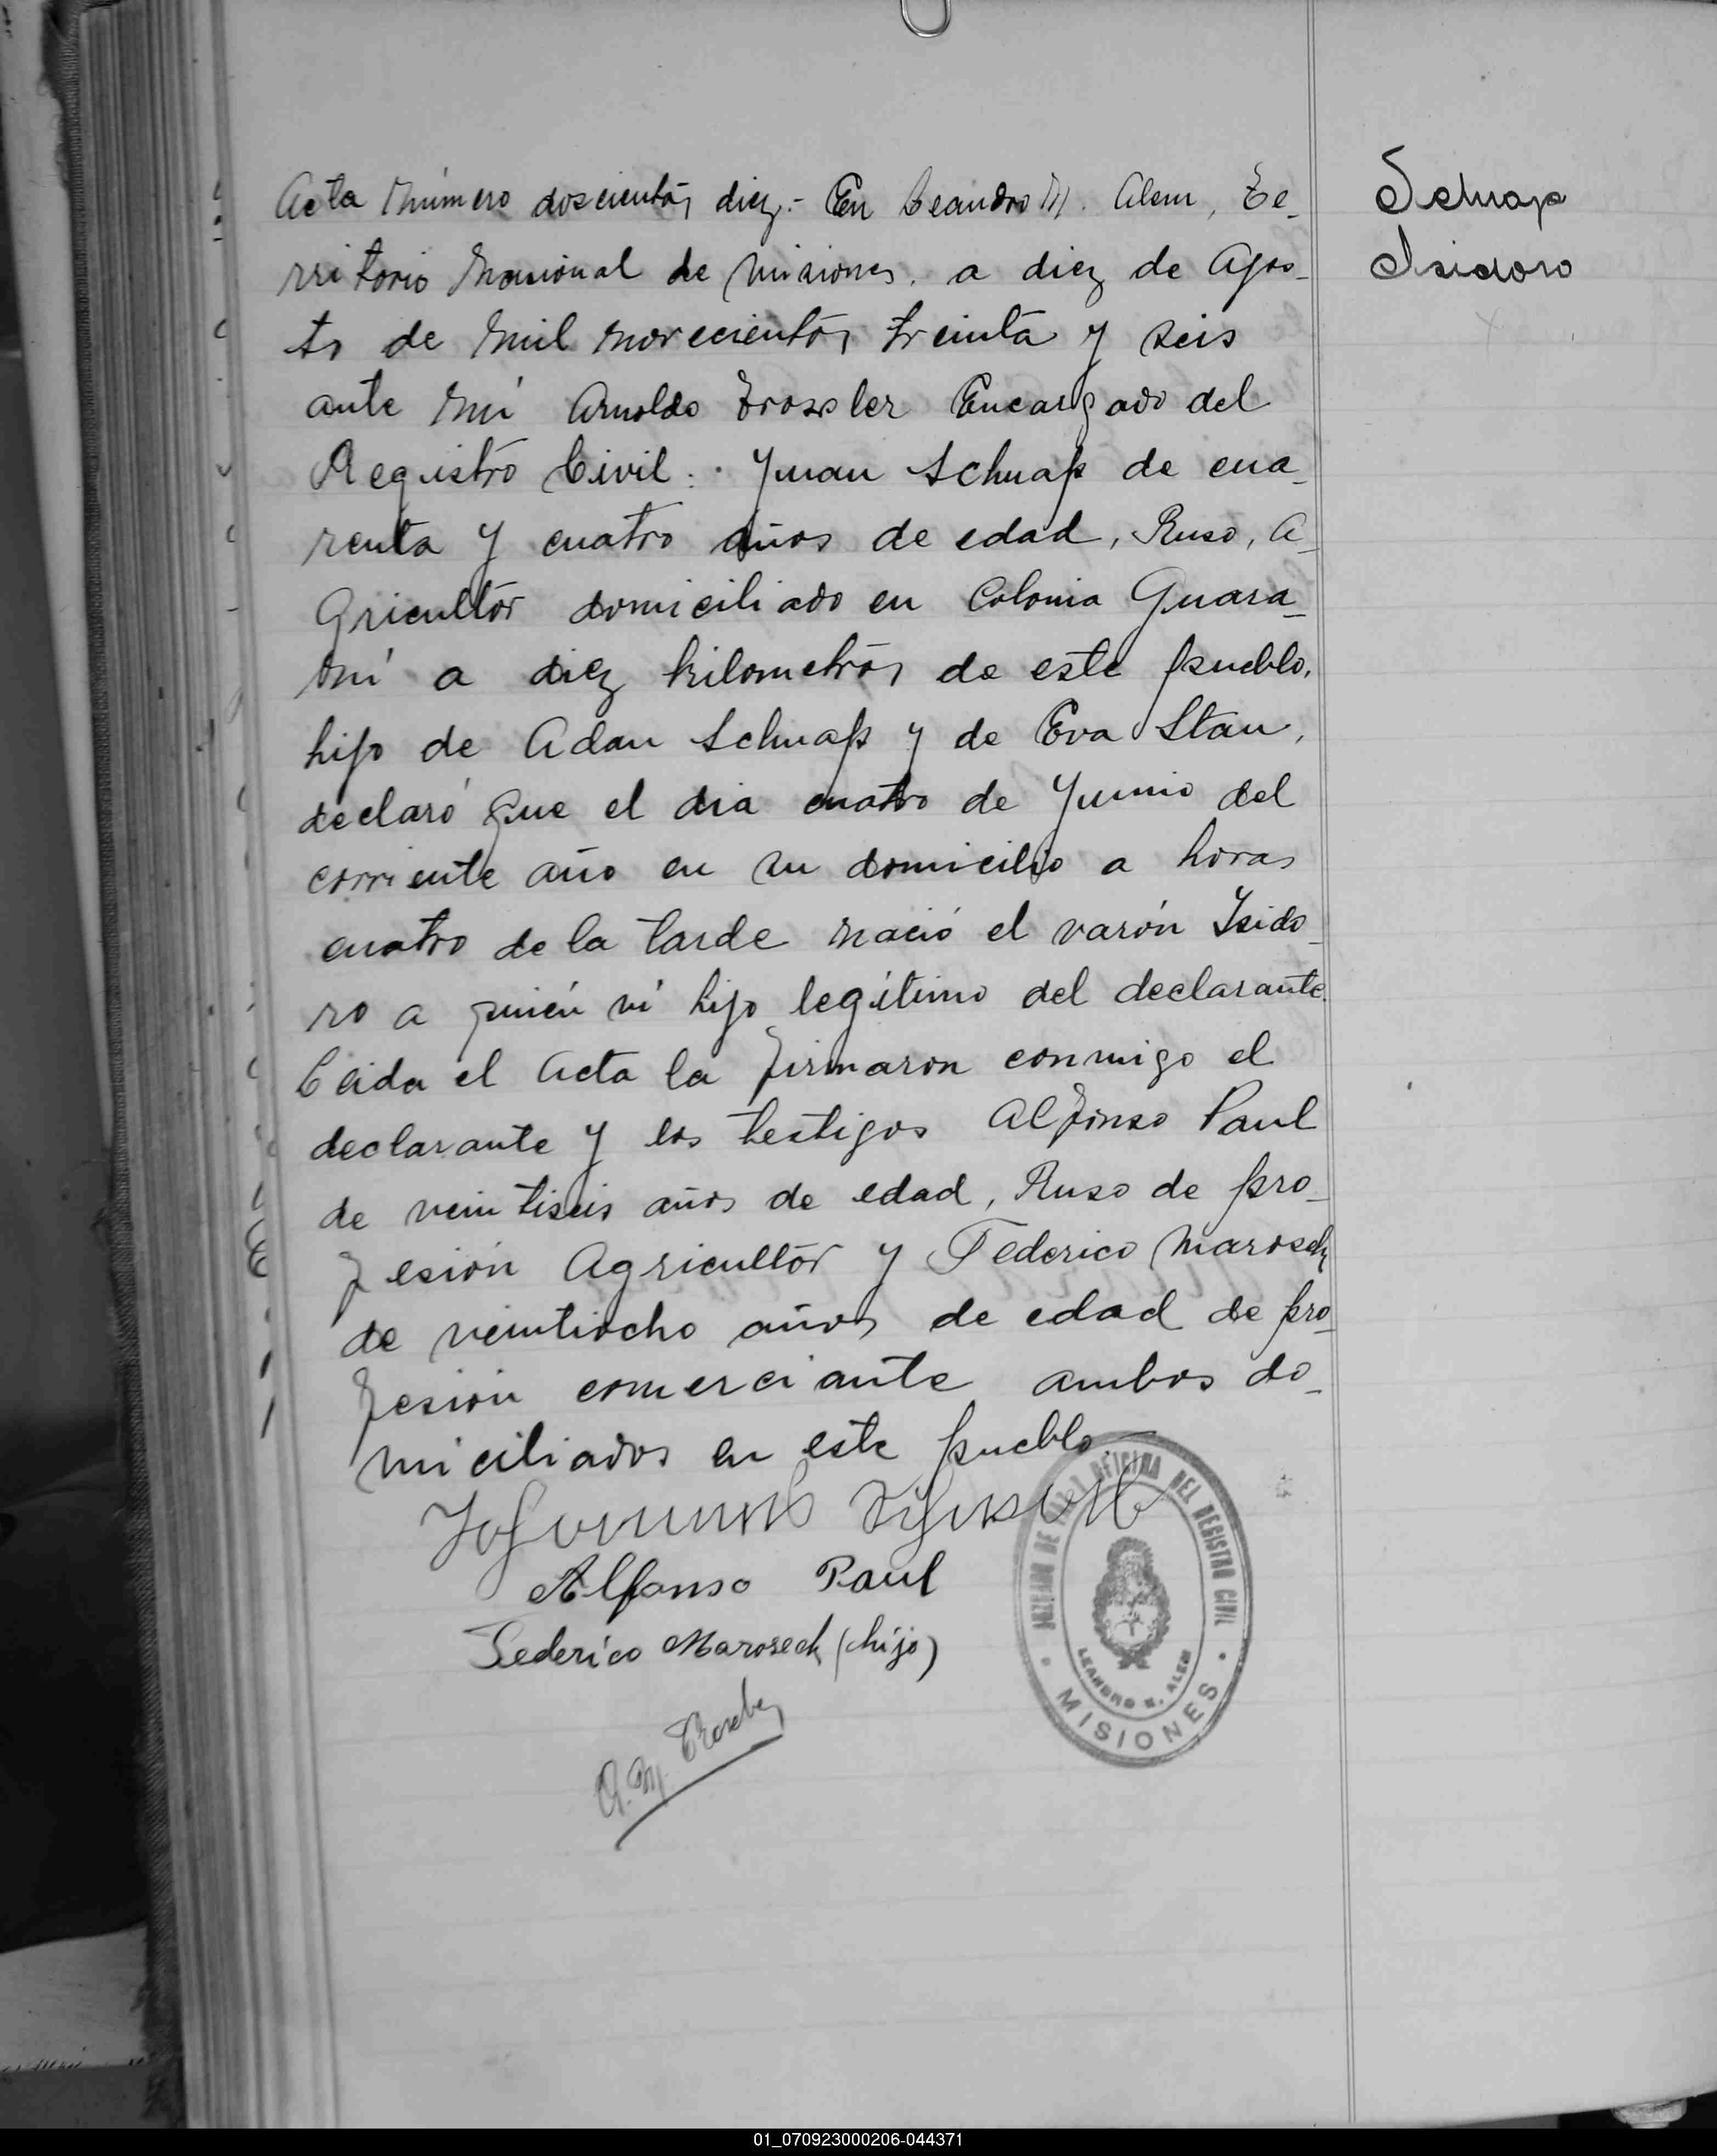 Schnap
Isidoro
Acta Número doscientos diez.- En Leandro N. Alem, Te-
rritorio Nacional de Misiones, a diez de Agos-
to de Mil novecientos treinta y seis
ante mi Arnoldo Trossler Encargado del
Registro Civil: Juan Schnap de cua-
renta y cuatro años de edad, Ruso, A-
gricultor domiciliado en Colonia Guara-
ní a diez kilometros de este pueblo,
hijo de Adan Schnap y de Eva Stan,
declaró que el dia cuatro de Junio del
corriente año en su domicilio a horas
cuatro de la tarde nació el varón Isido-
ro a quién ví hijo legítimo del declarante.
Leida el Acta la firmaron conmigo el
declarante y los testigos Alfonso Paul
de veintiseis años de edad, Ruso de pro-
fesión Agricultor y Federico Marosek
de veintiocho años de edad de pro-
fesión comerciante ambos do-
miciliados en este pueblo.
Alfonso Paul
Federico Marosek (hijo)
JUZGADO DE PAZ Y OFICINA DEL REGISTRO CIVIL
LEANDRO N. ALEM
MISIONES
01_070923000206-044371